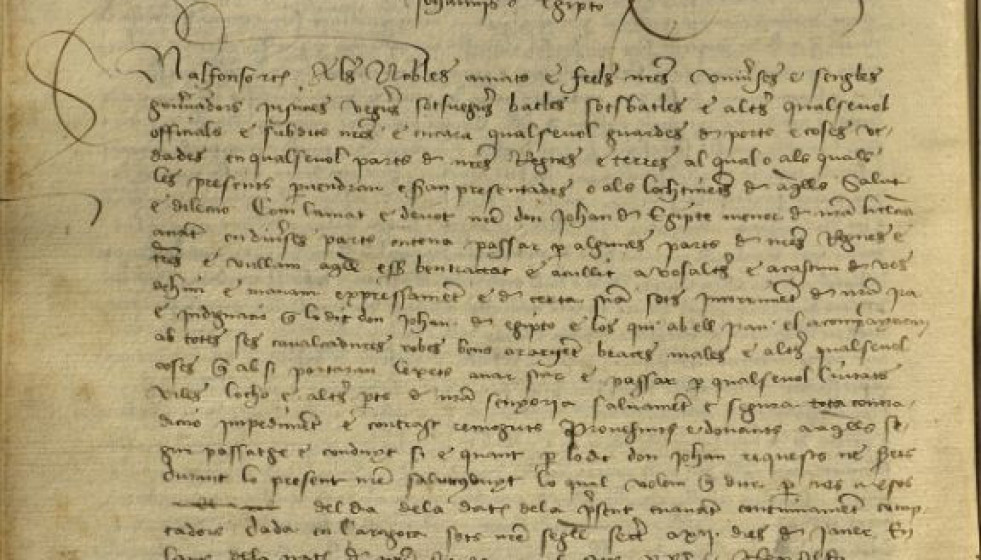 Johannis de Egipto
N alfonso etc. Als Nobles amats e feels nrēs univses e sengles
govnadors justicies veguers sotsveguers batles sotsbatles e altres qualsevol
officials e subdits nrēs e encara qualsevol guardes de ports e coses ve
dades en qualsevol parts de nrēs Regnes e terres al qual o als quals
les presents pvendran e seran presentades o als lochtinents de aqlls Salut
e dileccio Com lamat e devot nrē don Johan de Egipte menor de nrā licencia
anant en divses parts entena passar per algunes parts de nrēs Regnes e
trēs e vullam aqll esser ben tractat e acullit a vosaltres e a cascun de vos
dehim e manam expressament e de certa sciencia sots incorriment de nrā ira
e indignacio q lo dit don Johan de egipto e los qui ab ell iran el acompanyaran
ab totes ses cavalcadures robes bens or argent biaces males e altres qualsevol
coses q ab si portaran lexets anar star e passar per qualsevol Ciutats
viles lochs e altres pts de nrā senyoria salvament e segura tota contra
diccio impediment e contrast remoguts Provehints e donants a aqlls se
gur passatge e conduyt si e quant per lo dit don Johan requests ne sérets
durant lo present nrē salvconduyt lo qual volem q dur per tres mesos
del dia dela data dela psent enavant continuament comp
tadors Dada en Caragoça sots nrē segell secret a xii dies de Janer En